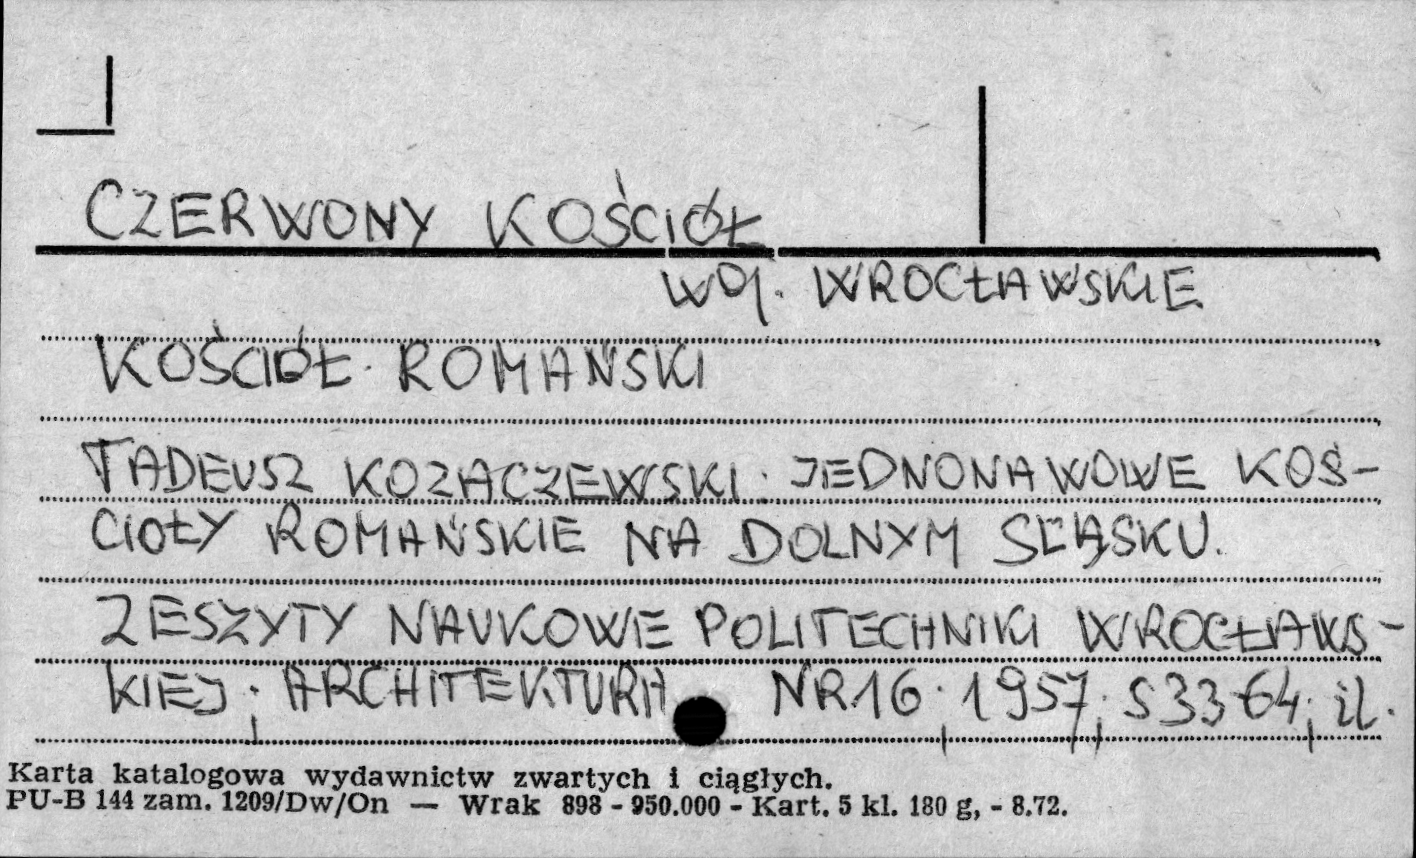 CZERWONY KOŚCIÓŁ
WOJ. WROCŁAWSKIE
KOŚCIÓŁ ROMAŃSKI
TADEUSZ KOZACZEWSKI: JEDNONAWOWE KOŚ-
CIOŁY ROMAŃSKIE NA DOLNYM ŚLĄSKU.
ZESZYTY NAUKOWE POLITECHNIKI WROCŁAWS-
KIEJ; ARCHITEKTURA NR16; 1957; S 33-64; il.
Karta katalogowa wydawnictw zwartych i ciągłych.
PU-B 144 zam. 1209/Dw/On — Wrak 898 - 950.000 - Kart. 5 kl. 180 g, - 8.72.